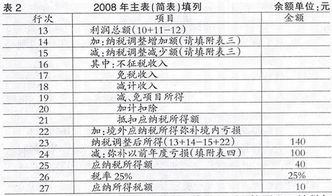 表2 2008年主表(简表)填列 余额单位:元
行次 项目 金额
13 利润总额(10+11-12)
14 加:纳税调整增加额(请填附表三)
15 减:纳税调整减少额(请填附表三)
16 其中:不征税收入
17 免税收入
18 减计收入
19 减、免项目所得
20 加计扣除
21 抵扣应纳税所得额
22 加:境外应纳税所得弥补境内亏损
23 纳税调整后所得(13+14-15+22) 140
24 减:弥补以前年度亏损(请填附表四) 100
25 应纳税所得额 40
26 税率25% 25%
27 应纳所得税额 10